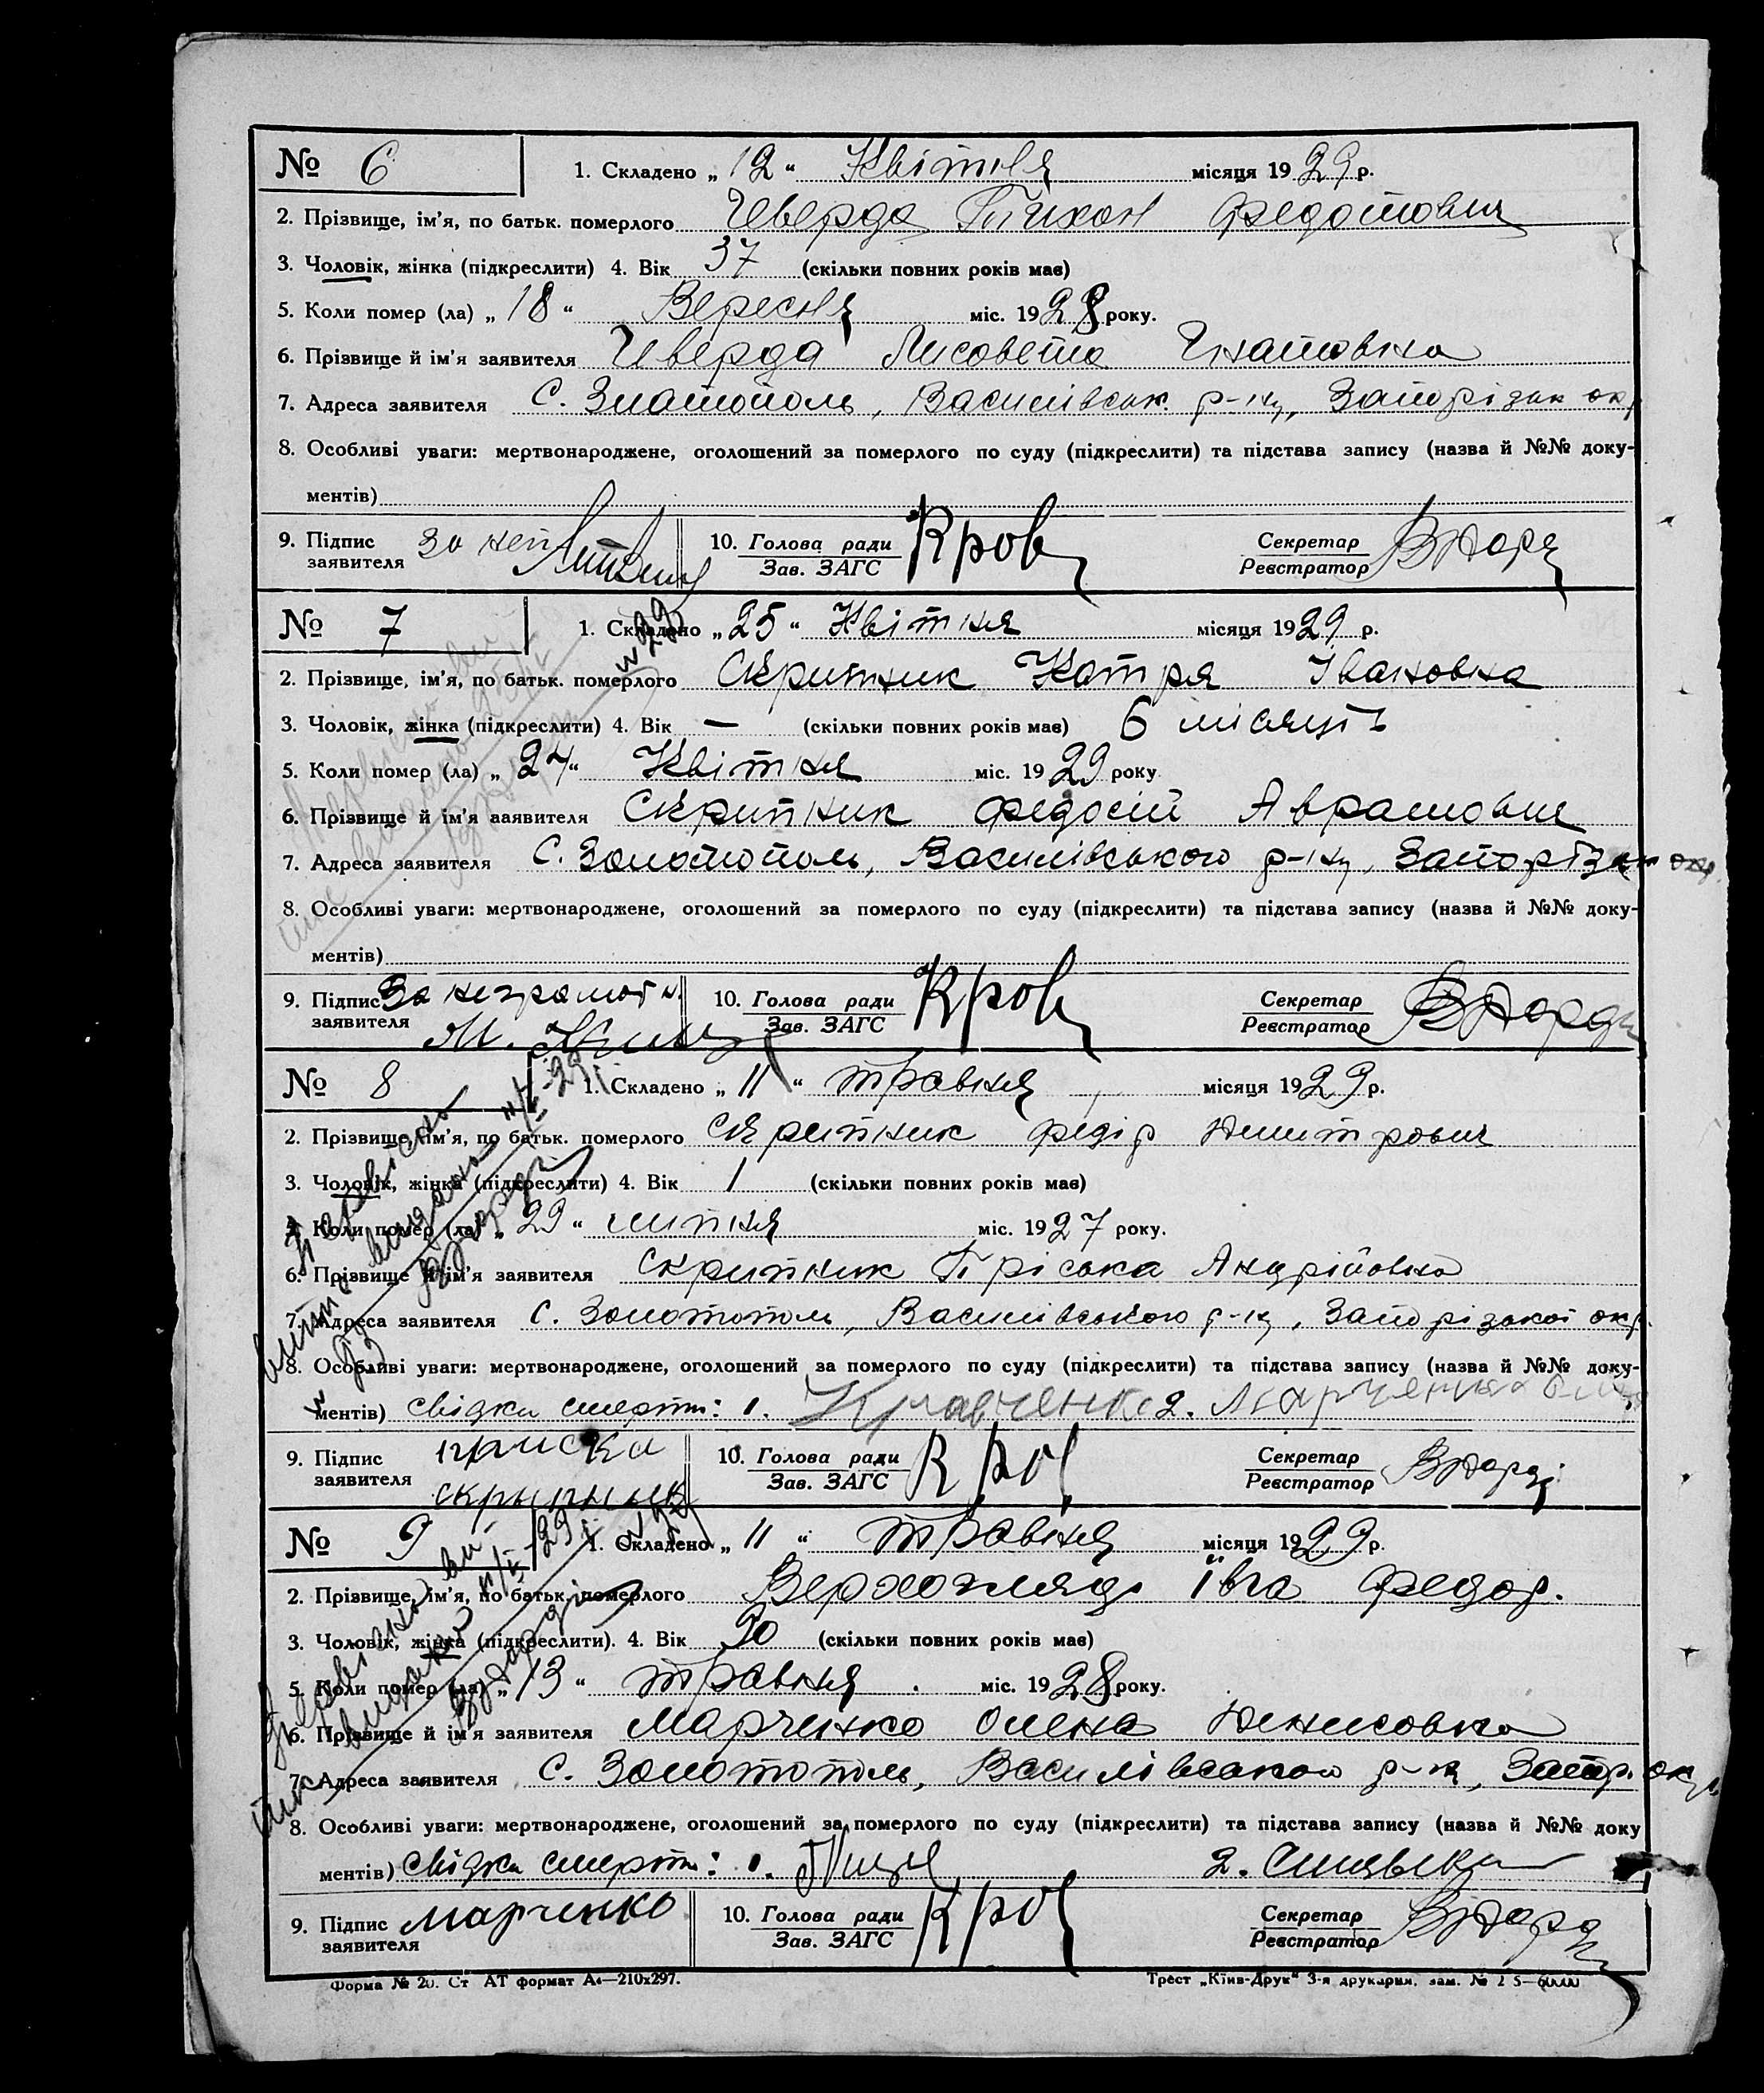 № 6 1. Складено „12“ Квітня місяця 1929 р.
2. Прізвище, ім'я, по батьк. померлого Чверда Тихон Федотович
3. Чоловік, жінка (підкреслити) 4. Вік 37 (скільки повних років має)
5. Коли помер (ла) „18“ Вересня міс. 1928 року.
6. Прізвище й ім'я заявителя Чверда Лисовета Гнатовна
7. Адреса заявителя С. Златополь, Василівськ. р-ну, Запорізьк окр
8. Особливі уваги: мертвонароджене, оголошений за померлого по суду (підкреслити) та підстава запису (назва й №№ доку-
ментів)
9. Підпис заявителя За неп 10. Голова ради Зав. ЗАГС Кров Секретар Реєстратор
№ 7 1. Складено „25“ Квітня місяця 1929 р.
2. Прізвище, ім'я, по батьк. померлого Скрипник Катря Івановна
3. Чоловік, жінка (підкреслити) 4. Вік — (скільки повних років має) 6 місяців
5. Коли помер (ла) „24“ Квітня міс. 1929 року
6. Прізвище й ім'я заявителя Скрипник Федосій Аврамович
7. Адреса заявителя С. Золотополь, Василівського р-ну, Запорізьк окр
8. Особливі уваги: мертвонароджене, оголошений за померлого по суду (підкреслити) та підстава запису (назва й №№ доку-
ментів)
9. Підпис заявителя За неграмотн. М. 10. Голова ради Зав. ЗАГС Кров Секретар Реєстратор
№ 8 1. Складено „11“ травня місяця 1929 р.
2. Прізвище, ім'я, по батьк. померлого Скрипник Федір Дмитрович
3. Чоловік, жінка (підкреслити) 4. Вік 1 (скільки повних років має)
5. Коли помер (ла) „29“ липня міс. 1927 року.
6. Прізвище й ім'я заявителя Скрипник Пріська Андрійовна
7. Адреса заявителя С. Золотополь, Василівського р-ну, Запорізької окр.
8. Особливі уваги: мертвонароджене, оголошений за померлого по суду (підкреслити) та підстава запису (назва й №№ доку-
ментів) свідки смерти: 1. Кравченко 2. Марченко
9. Підпис заявителя приска скрыпнык 10. Голова ради Зав. ЗАГС Кров Секретар Реєстратор
№ 9 1. Складено „11“ травня місяця 1929 р.
2. Прізвище, ім'я, по батьк. померлого Верхогляд Івга Федор.
3. Чоловік, жінка (підкреслити). 4. Вік 90 (скільки повних років має)
5. Коли помер (ла) „13“ травня міс. 1928 року.
6. Прізвище й ім'я заявителя Марченко Олена Денисовна
7. Адреса заявителя С. Золотополь, Василівського р-ну, Запор. окр.
8. Особливі уваги: мертвонароджене, оголошений за померлого по суду (підкреслити) та підстава запису (назва й №№ доку
ментів) свідки смерти: 1. 2.
9. Підпис заявителя Марченко 10. Голова ради Зав. ЗАГС Кров Секретар Реєстратор
Форма № 20. Ст АТ формат А4—210х297. Трест „Київ-Друк“ 3-я друкарня, зам. №